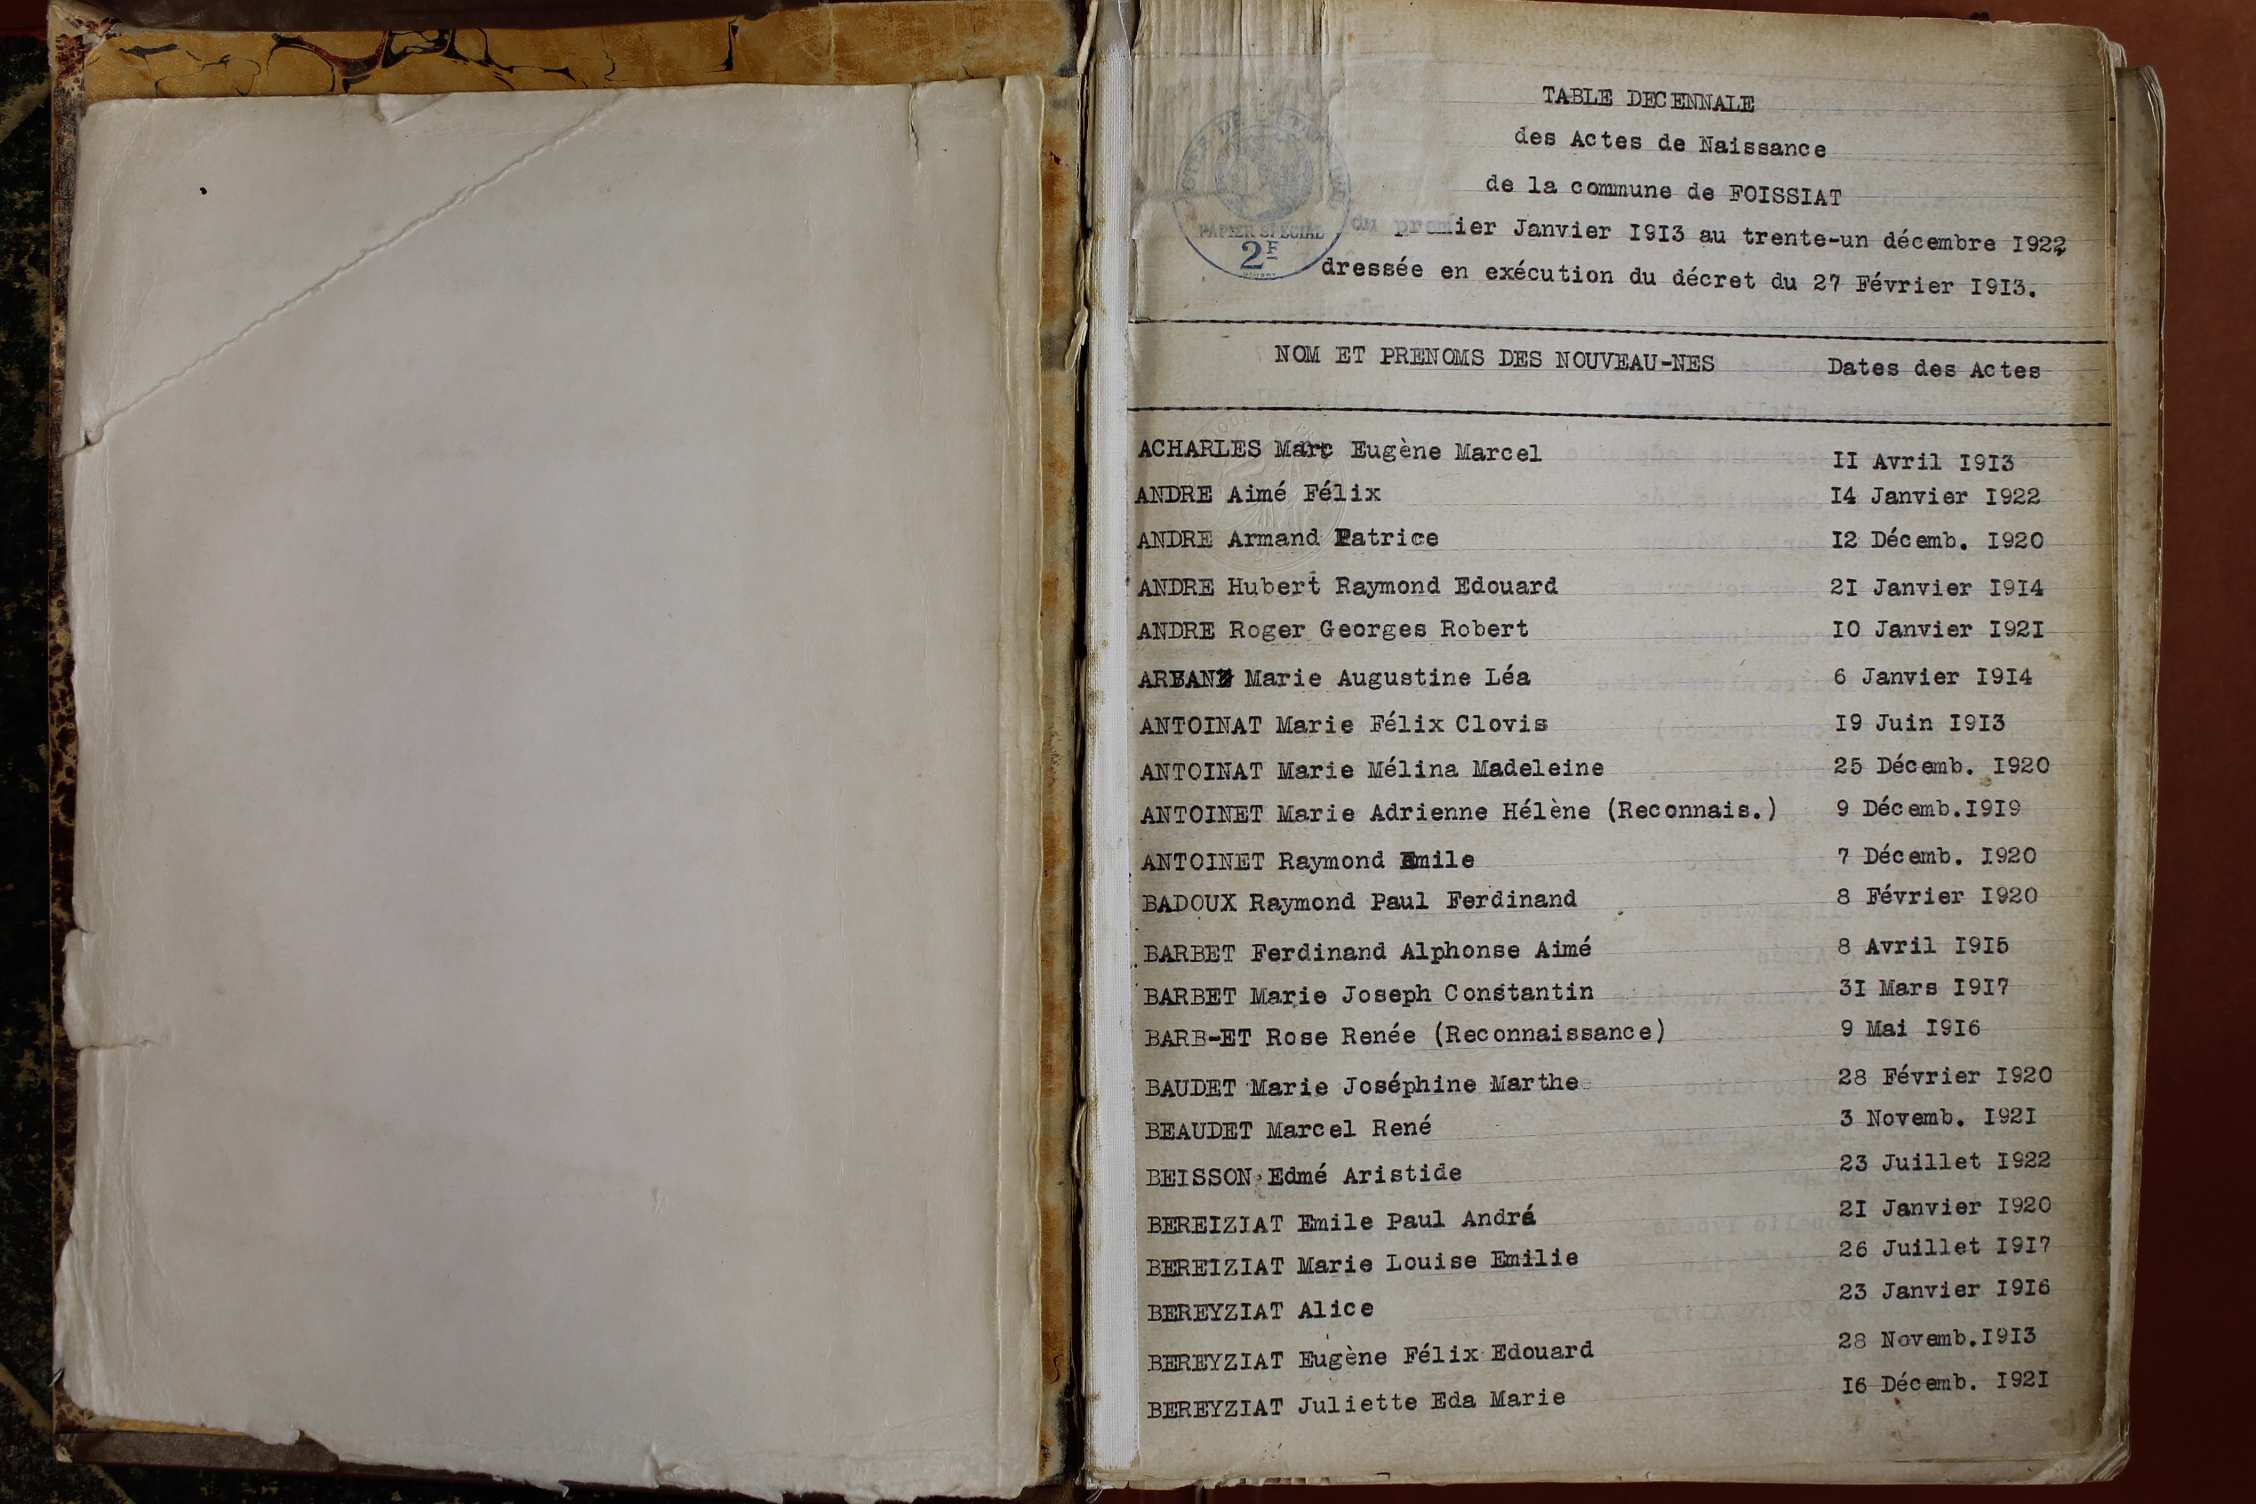 TABLE DECENNALE
des Actes de Naissance
de la commune de FOISSIAT
du premier Janvier I9I3 au trente-un décembre I922,
dressée en exécution du décret du 27 Février I9I3.
PAPIER SPECIAL
2F
NOM ET PRENOMS DES NOUVEAU-NES Dates des Actes
ACHARLES Marc Eugène Marcel II Avril I9I3
ANDRE Aimé Félix I4 Janvier I922
ANDRE Armand Patrice I2 Décemb. I920
ANDRE Hubert Raymond Edouard 2I Janvier I9I4
ANDRE Roger Georges Robert IO Janvier I92I
Marie Augustine Léa 6 Janvier I9I4
ANTOINAT Marie Félix Clovis I9 Juin I9I3
ANTOINAT Marie Mélina Madeleine 25 Décemb. I920
ANTOINET Marie Adrienne Hélène (Reconnais.) 9 Décemb.I9I9
ANTOINET Raymond Emile 7 Décemb. I920
BADOUX Raymond Paul Ferdinand 8 Février I920
BARBET Ferdinand Alphonse Aimé 8 Avril I9I5
BARBET Marie Joseph Constantin 3I Mars I9I7
BARB-ET Rose Renée (Reconnaissance) 9 Mai I9I6
BAUDET Marie Joséphine Marthe 28 Février I920
BEAUDET Marcel René 3 Novemb. I92I
BEISSON Edmé Aristide 23 Juillet I922
BEREIZIAT Emile Paul André 2I Janvier I920
BEREIZIAT Marie Louise Emilie 26 Juillet I9I7
BEREYZIAT Alice 23 Janvier I9I6
BEREYZIAT Eugène Félix Edouard 28 Novemb.I9I3
BEREYZIAT Juliette Eda Marie I6 Décemb. I92I